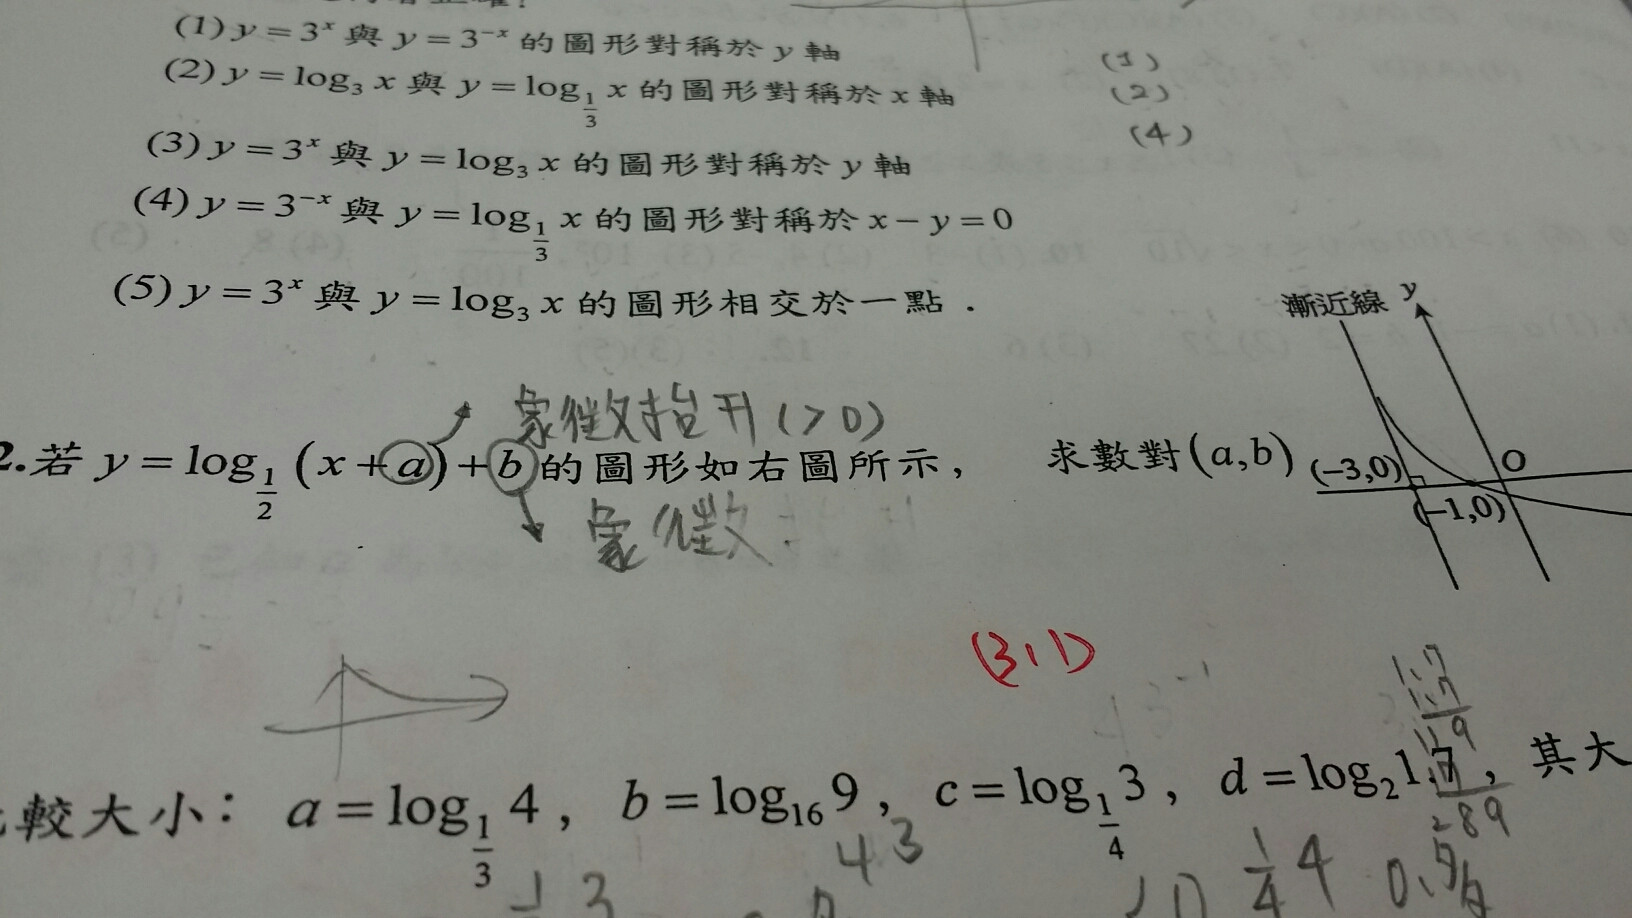 (1) y = 3^x 與 y = 3^{-x} 的圖形對稱於 y 軸
(1)
(2) y = log_3 x 與 y = log_{1/3} x 的圖形對稱於 x 軸
(2)
(3) y = 3^x 與 y = log_3 x 的圖形對稱於 y 軸
(4)
(4) y = 3^{-x} 與 y = log_{1/3} x 的圖形對稱於 x − y = 0
(5) y = 3^x 與 y = log_3 x 的圖形相交於一點．
漸近線 y
象徵抬升(>0)
2.若 y = log_{1/2} (x + a) + b 的圖形如右圖所示， 求數對(a,b)
(−3,0) O
(−1,0)
象徵:
(3,1)
1.7
1.7
119
289
較大小： a = log_{1/3} 4， b = log_{16} 9， c = log_{1/4} 3， d = log_2 1.7， 其大
4 3
1/4 4